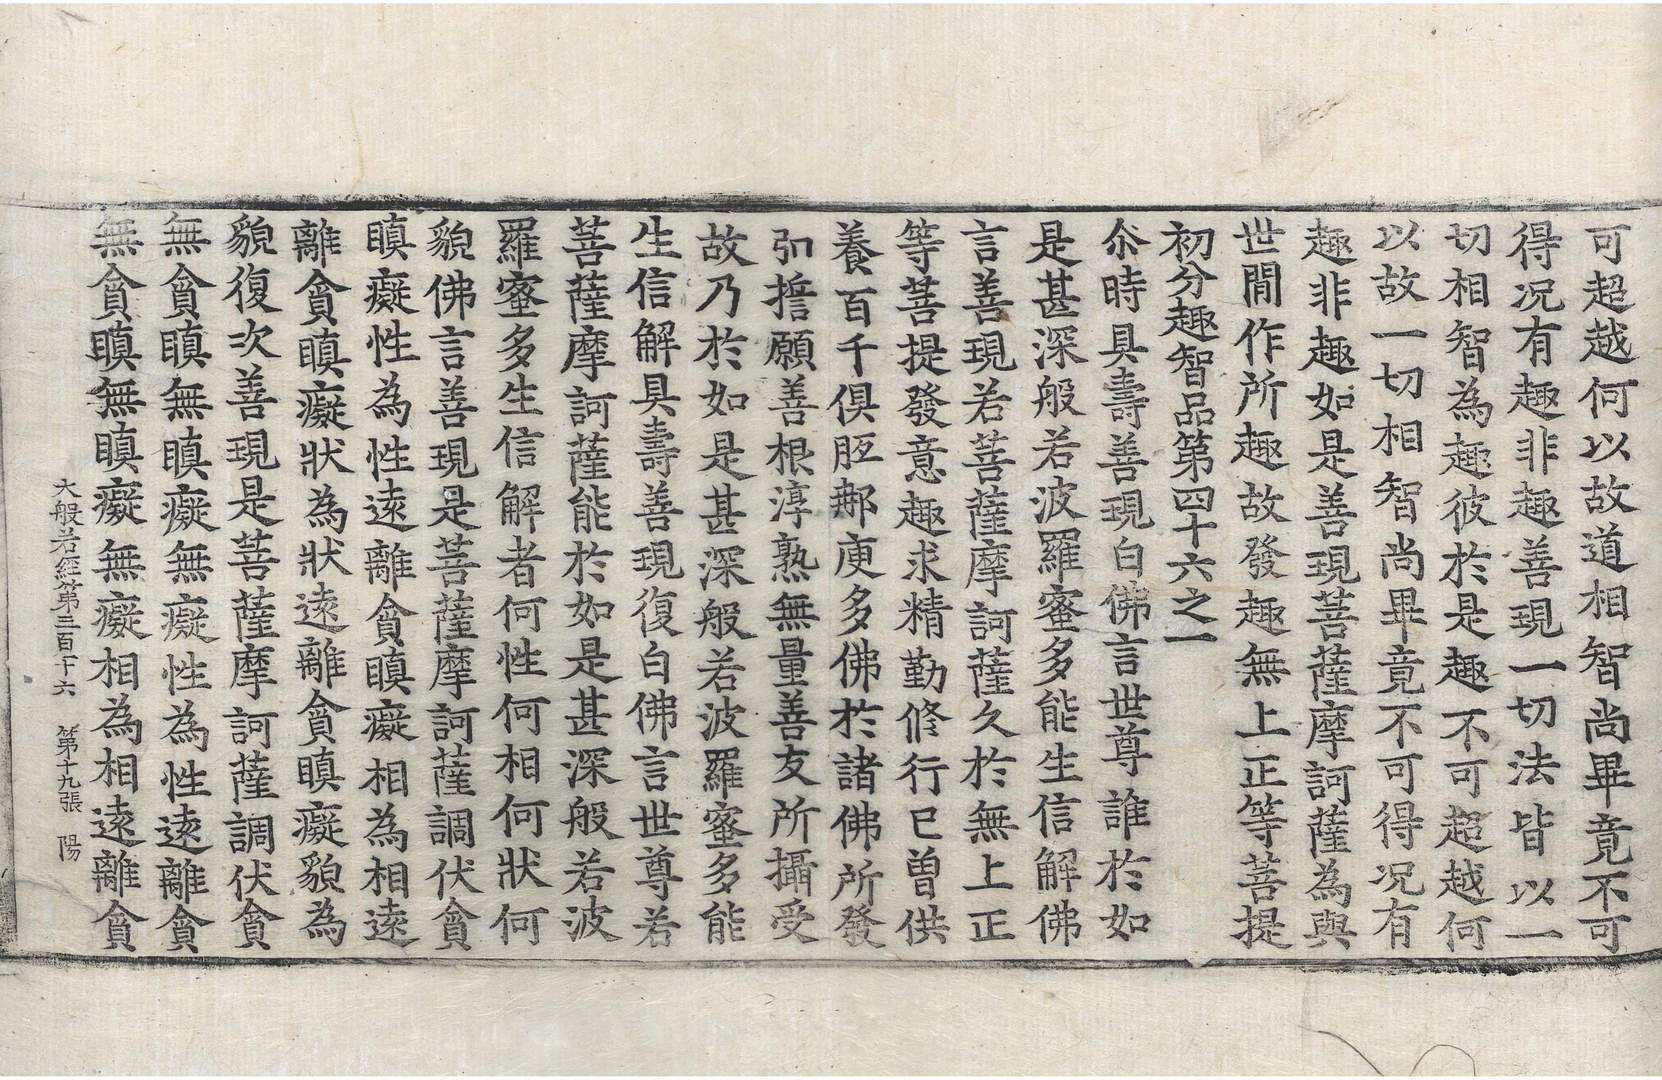 可超越何以故道相智尚畢竟不可
得况有趣非趣善現一切法皆以一
切相智為趣彼於是趣不可超越何
以故一切相智尚畢竟不可得况有
趣非趣如是善現菩薩摩訶薩為與
世間作所趣故發趣無上正等菩提
初分趣智品第四十六之一
尒時具壽善現白佛言世尊誰於如
是甚深般若波羅蜜多能生信解佛
言善現若菩薩摩訶薩久於無上正
等菩提發意趣求精勤修行已曽供
養百千俱胝那庾多佛於諸佛所發
弘誓願善根淳熟無量善友所攝受
故乃於如是甚深般若波羅蜜多能
生信解具壽善現復白佛言世尊若
菩薩摩訶薩能於如是甚深般若波
羅蜜多生信解者何性何相何狀何
貌佛言善現是菩薩摩訶薩調伏貪
瞋癡性為性遠離貪瞋癡相為相遠
離貪瞋癡狀為狀遠離貪瞋癡貌為
貌復次善現是菩薩摩訶薩調伏貪
無貪瞋無瞋癡無癡性為性遠離貪
無貪瞋無瞋癡無癡相為相遠離貪
大般若經第三百十六 第十九張 陽